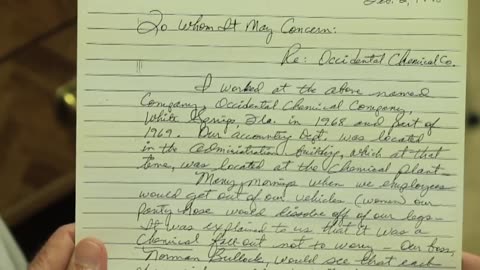 To Whom It May Concern:
Re: Occidental Chemical Co.
I worked at the above named
Company, Occidental Chemical Company,
White Springs, Fla. in 1968 and part of
1969. Our accounting Dept. was located
in the administration building, which at that
time, was located at the Chemical plant-
Many mornings when we employees
would get out of our vehicles (women) our
panty hose would dissolve off of our legs-
It was explained to us that it was a
Chemical fall out not to worry - Our boss,
Norman Bullock, would see that each